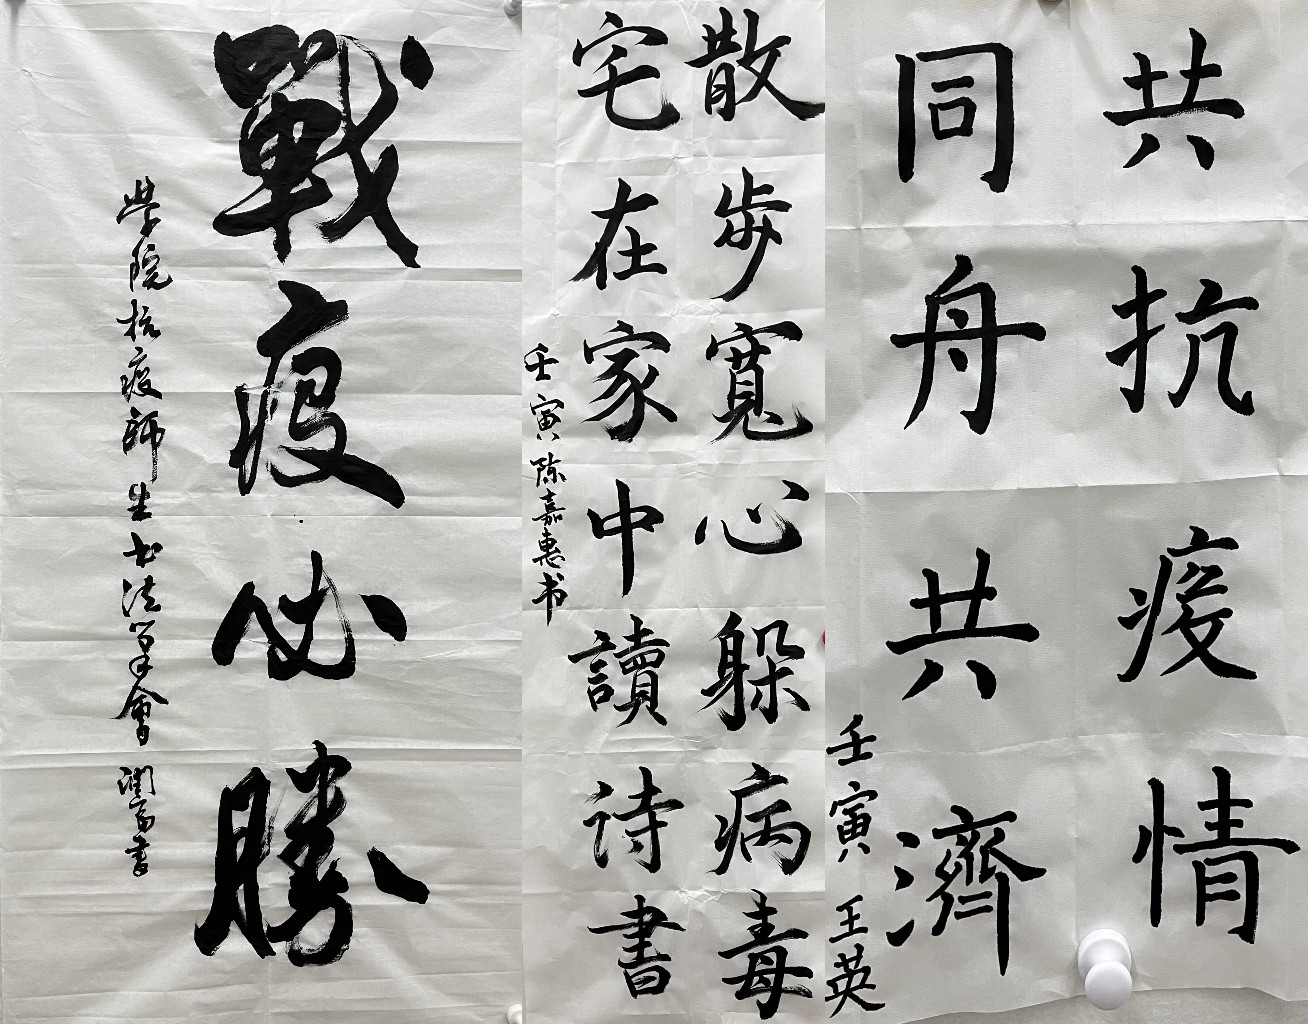 戰疫必勝
学院抗疫師生书法笔會 書
散步寬心躲病毒
宅在家中讀诗書
壬寅陈嘉惠书
共抗疫情
同舟共濟
壬寅 王英